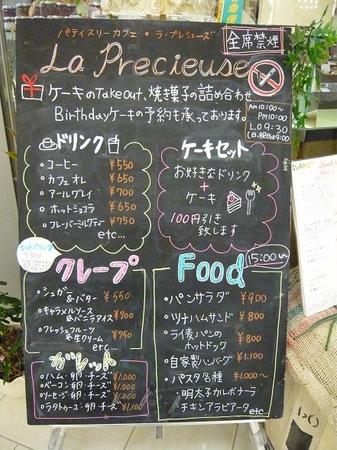 パティスリーカフェ・ラ・プレシューズ
La Precieuse
全席禁煙
ケーキのTakeOut、焼き菓子の詰め合わせ
Birthdayケーキの予約も承っております。
Am10:00~
Pm10:00
L.O 9:30
ドリンク
・コーヒー ¥550
・カフェオレ ¥650
・アールグレイ ¥700
・ホットショコラ ¥650
・フレーバーミルクティ ¥750
etc...
ケーキセット
お好きなドリンク
+
ケーキ
100円引き
致します
クレープ
・シュガー&バター ¥550
・キャラメルソース
&バニラアイス ¥700
・フレッシュフルーツ
&生クリーム ¥750
ガレット
・ハム・卵・チーズ ¥1.000
・ベーコン・卵・チーズ ¥1.000
・ソーセージ・卵・チーズ ¥1.000
・ラタトゥーユ・卵・チーズ ¥1.100
Food
15:00~
・パンサラダ ¥900
・ツナハムサンド ¥800
・ライ麦パンの
ホットドック ¥800
・自家製ハンバーグ ¥1.100
・パスタ各種 ¥1.000~
・明太子カルボナーラ
・チキンアラビアータ
etc